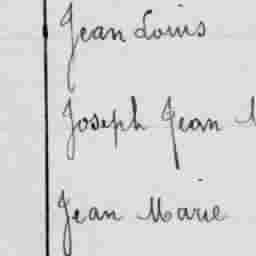 Jean Louis
Joseph Jean
Jean Marie